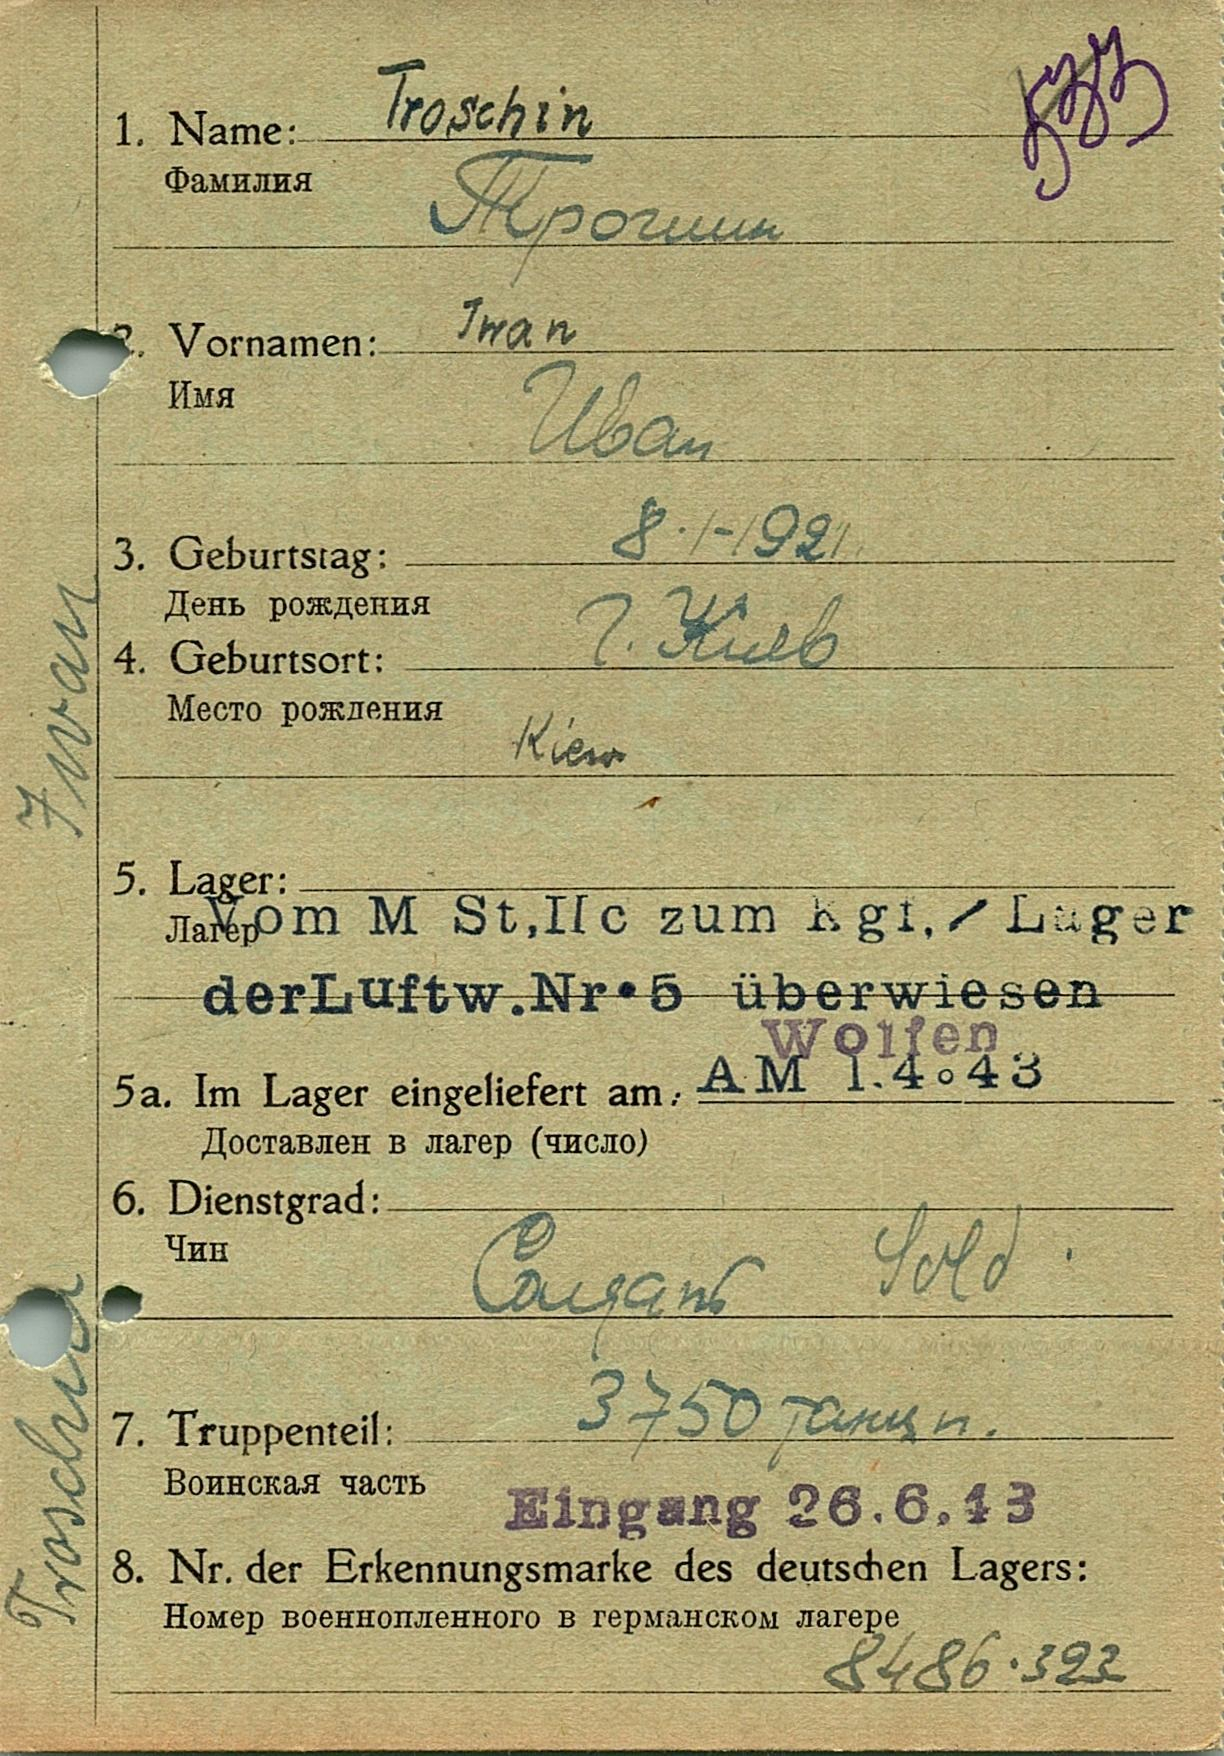 1. Name: Troschin
Фамилия
Трошин
2. Vornamen: Iwan
Имя
Иван
3. Geburtstag: 8.1-1921.
День рождения
4. Geburtsort: г. Киев
Место рождения
Kiew
5. Lager:
Лагер
Vom M St,IIc zum Kgf./Lager
derLuftw.Nr.5 überwiesen
Wolfen
5a. Im Lager eingeliefert am: AM 1.4.43
Доставлен в лагер (число)
6. Dienstgrad:
Чин
Солдат Sold.
7. Truppenteil: 3750 п.
Воинская часть
Eingang 26.6.43
8. Nr. der Erkennungsmarke des deutschen Lagers:
Номер военнопленного в германском лагере
8486.323
Troschin Iwan